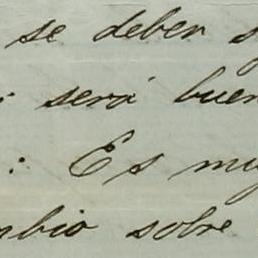 se deber
será buen
: Es muy
mbio sobre